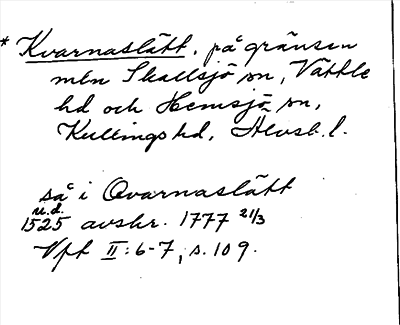 * Kvarnaslätt, på gränsen
mln Skallsjö sn, Vättle
hd och Hemsjö sn,
Kullings hd, Älvsb. l.
så i Qvarnaslätt
u.d.
1525 avskr. 1777 21/3
Vft II: 6-7, s. 109.